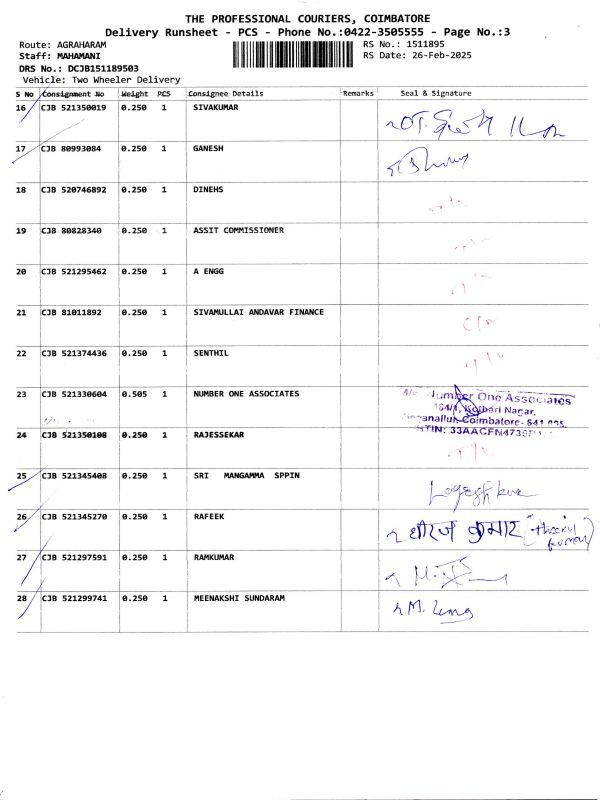 THE PROFESSIONAL COURIERS, COIMBATORE
Delivery Runsheet - PCS - Phone No.:0422-3505555 - Page No.:3
Route: AGRAHARAM
RS No.: 1511895
Staff: MAHAMANI
RS Date: 26-Feb-2025
DRS No.: DCJB151189503
Vehicle: Two Wheeler Delivery
S No Consignment No Weight PCS Consignee Details Remarks Seal & Signature
16 CJB 521350019 0.250 1 SIVAKUMAR
17 CJB 80993084 0.250 1 GANESH
18 CJB 520746892 0.250 1 DINEHS
19 CJB 80828340 0.250 1 ASSIT COMMISSIONER
20 CJB 521295462 0.250 1 A ENGG
21 CJB 81011892 0.250 1 SIVAMULLAI ANDAVAR FINANCE
22 CJB 521374436 0.250 1 SENTHIL
23 CJB 521330604 0.505 1 NUMBER ONE ASSOCIATES
Number One Associates
164/1, Kothari Nagar,
Coimbatore-
24 CJB 521350108 0.250 1 RAJESSEKAR
25 CJB 521345408 0.250 1 SRI MANGAMMA SPPIN
26 CJB 521345270 0.250 1 RAFEEK
धीरज कुमार
27 CJB 521297591 0.250 1 RAMKUMAR
28 CJB 521299741 0.250 1 MEENAKSHI SUNDARAM